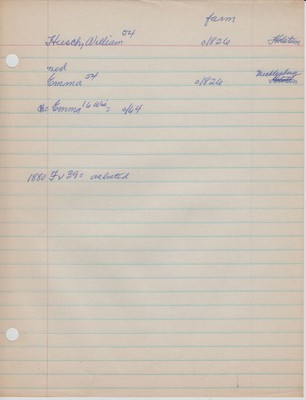 farm
Huesch, William 54 01826 Holstein
ned
Emma 54 01826 Mecklenburg
ch: Emma 16 Wis: 0/64
1880 Fv 39: related